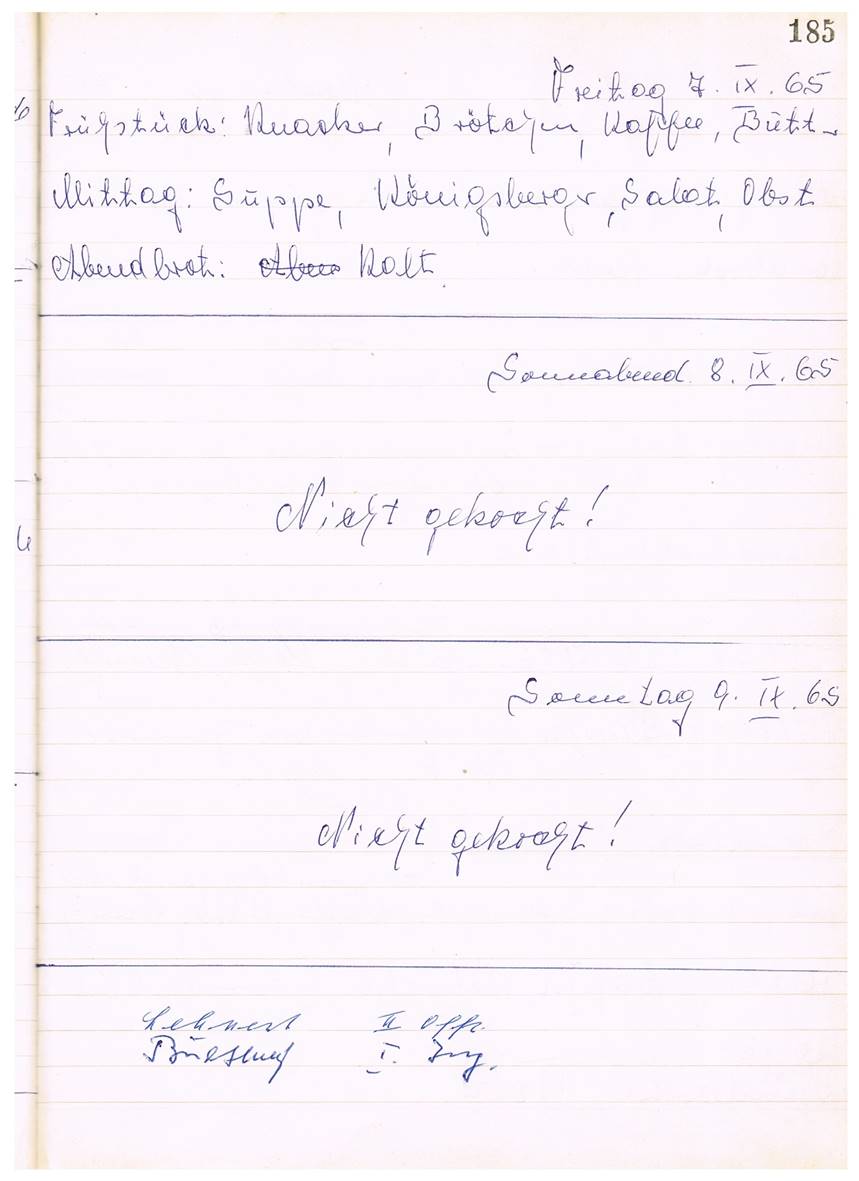 185
Freitag 7. IX. 65
Frühstück: Knacker, Brötchen, Kaffee, Butt
Mittag: Suppe, Königsberger, Salat, Obst
Abendbrot: Aben Kalt.
Sonnabend 8. IX. 65
Nicht gekocht!
Sonntag 9. IX. 65
Nicht gekocht!
Lehnert II Offz.
I. Ing.